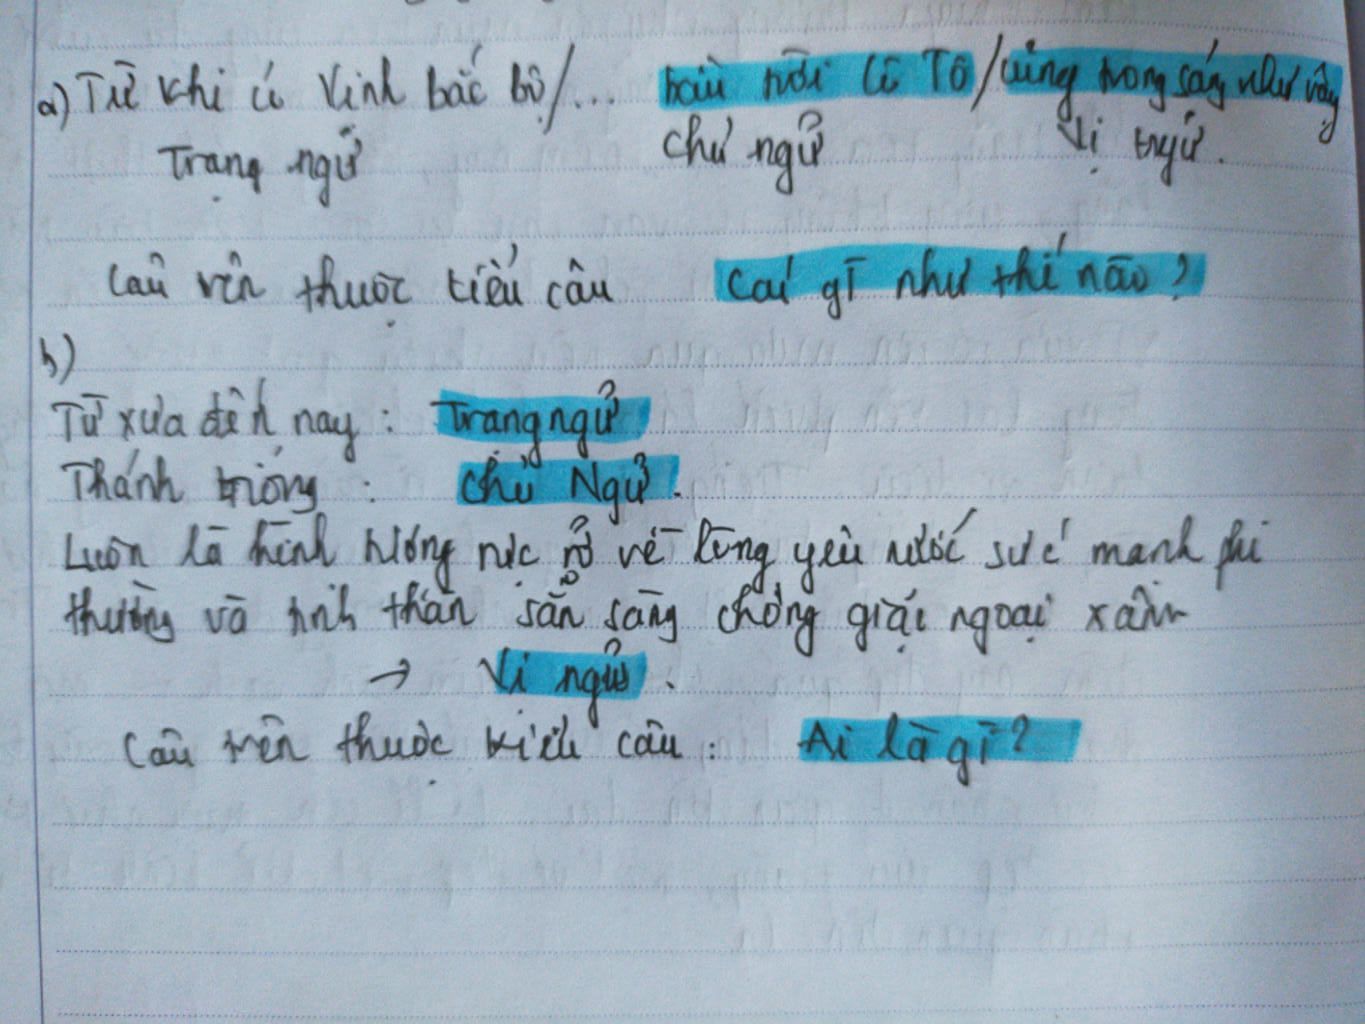 a) Từ khi có Vịnh bắc bộ/... bầu trời Cô Tô/cũng trong sáng như vậy
Trạng ngữ chủ ngữ Vị ngữ.
Câu trên thuộc kiểu câu Cái gì như thế nào?
b)
Từ xưa đến nay: Trạng ngữ
Thánh Gióng: Chủ Ngữ.
Luôn là hình tượng rực rỡ về lòng yêu nước sức mạnh phi
thường và tinh thần sẵn sàng chống giặc ngoại xâm
→ Vị ngữ.
Câu trên thuộc kiểu câu: Ai là gì?